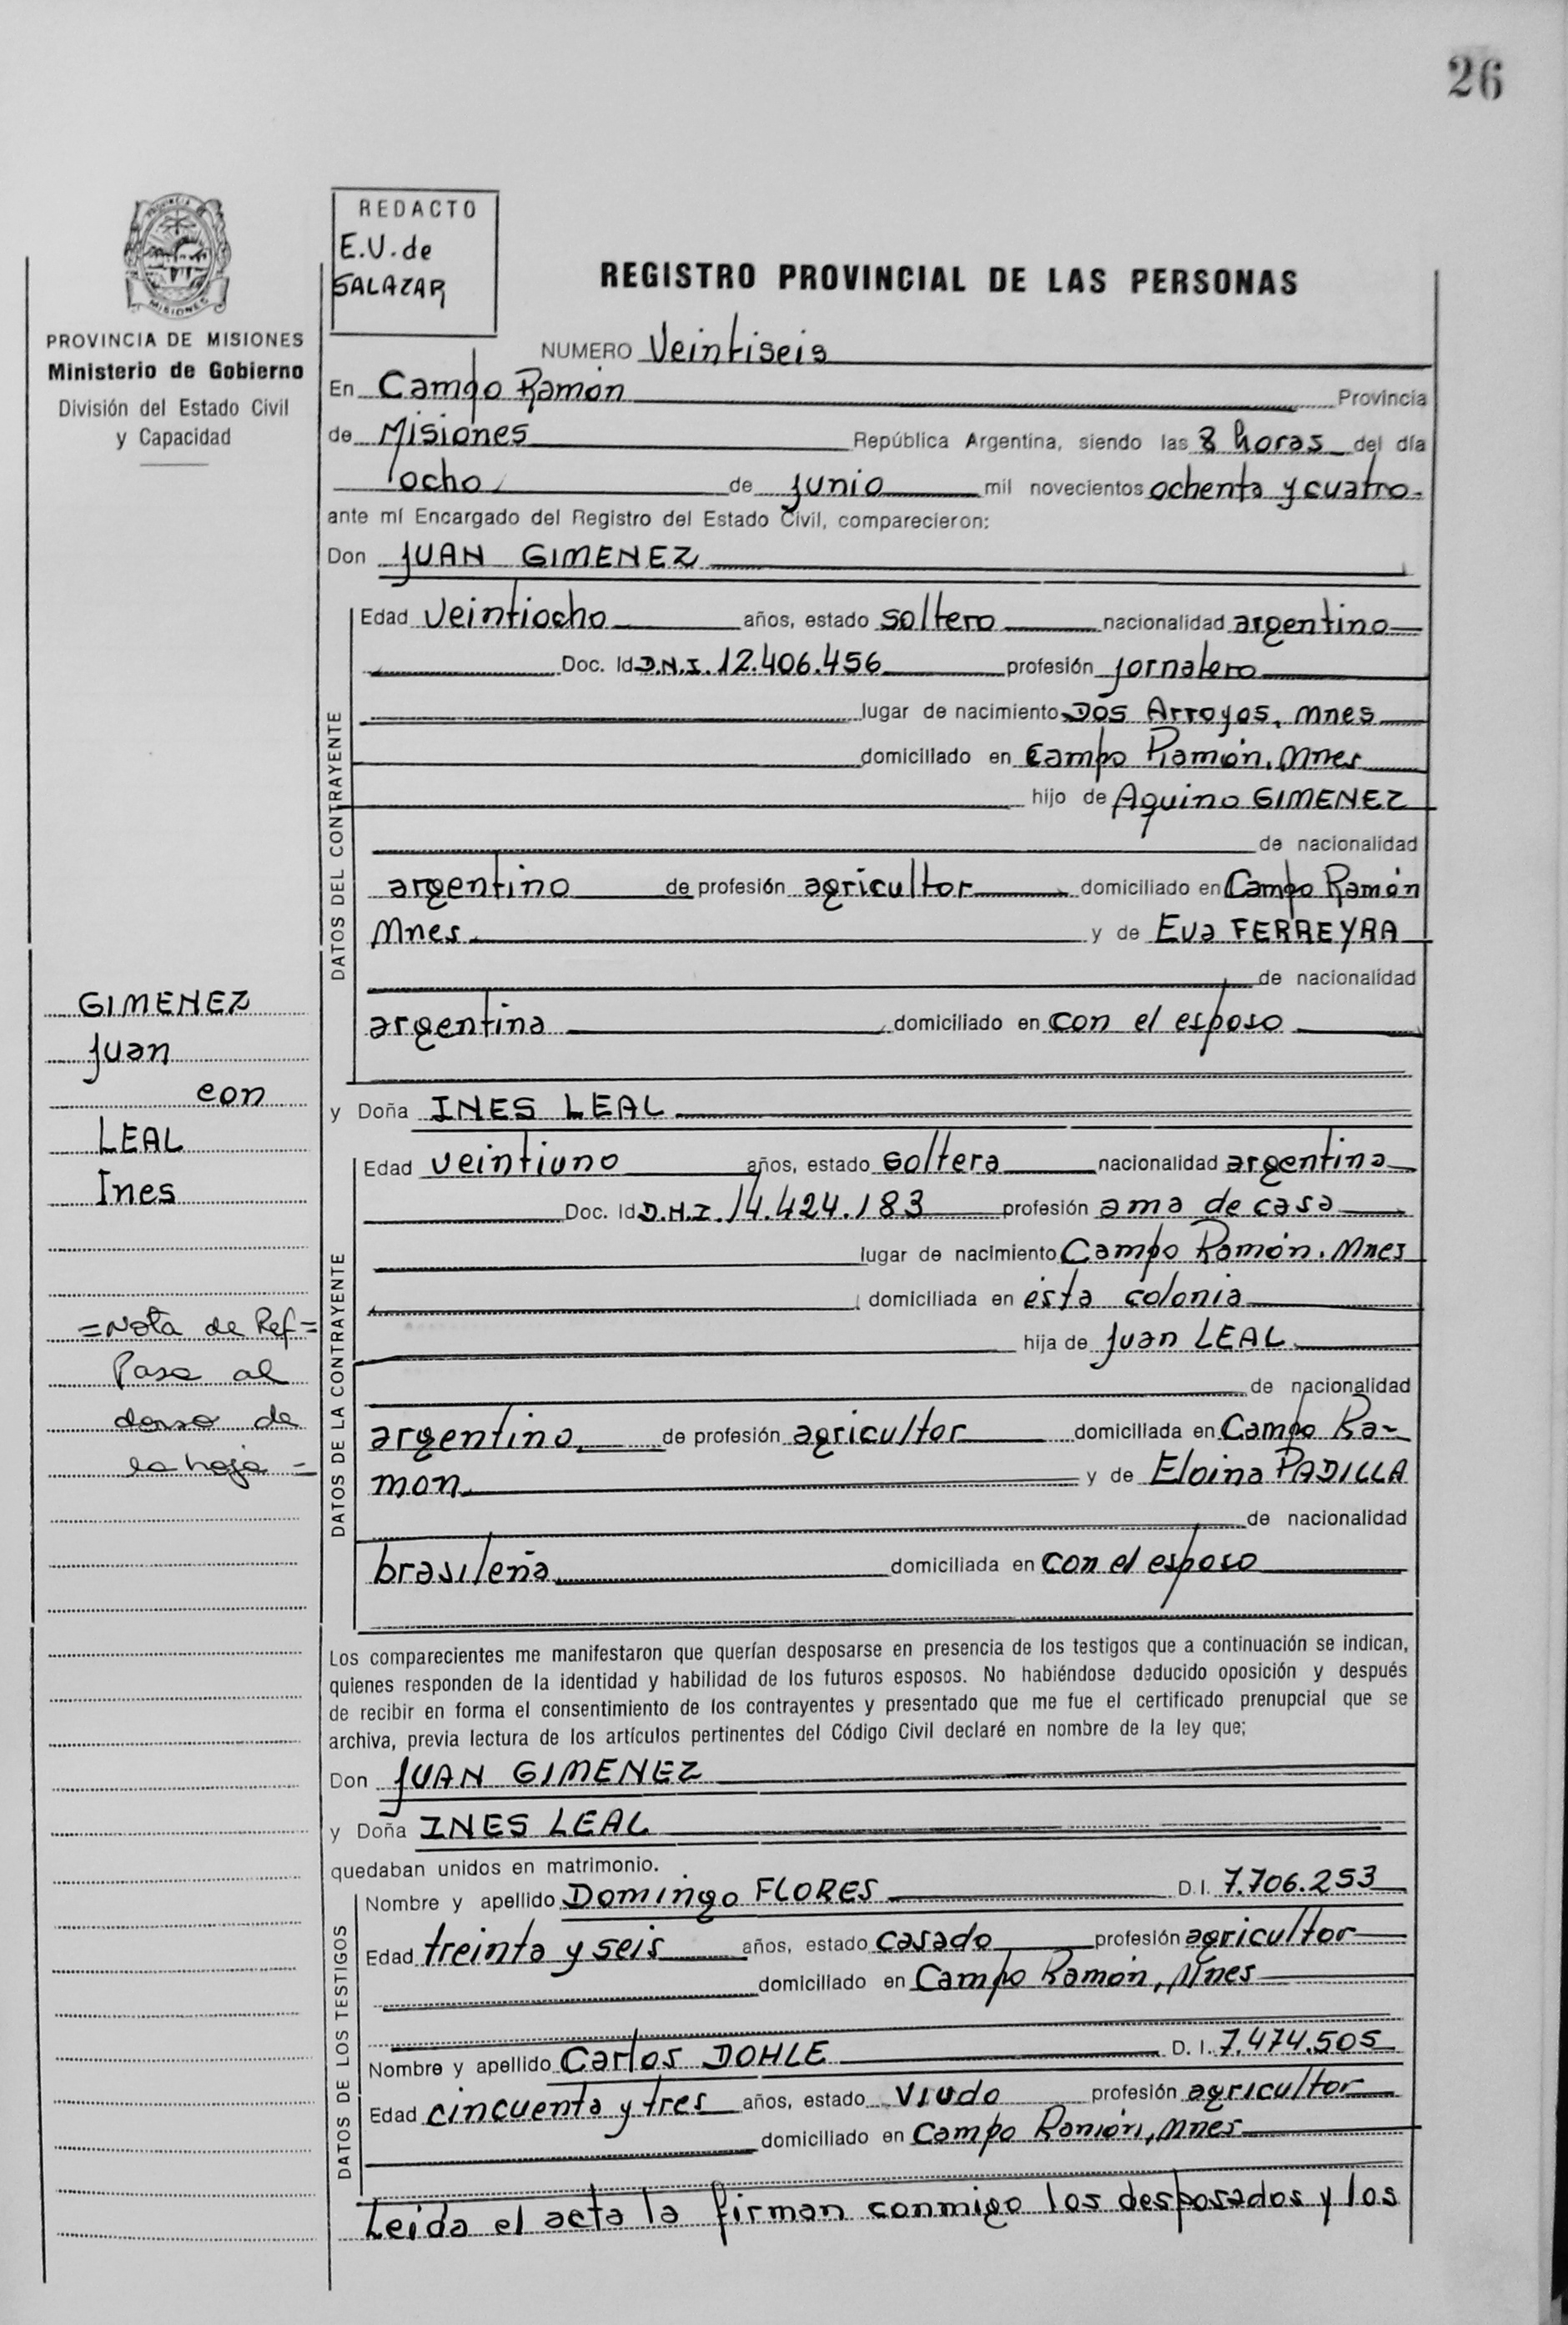 26
REDACTO
E.U. de
SALAZAR
PROVINCIA DE MISIONES
Ministerio de Gobierno
División del Estado Civil
y Capacidad
REGISTRO PROVINCIAL DE LAS PERSONAS
NUMERO Veintiseis
En Campo Ramón Provincia
de Misiones República Argentina, siendo las 8 horas del día
ocho de junio mil novecientos ochenta y cuatro.
ante mí Encargado del Registro del Estado Civil, comparecieron:
Don JUAN GIMENEZ
DATOS DEL CONTRAYENTE
Edad veintiocho años, estado soltero nacionalidad argentino
Doc. Id D.N.I. 12.406.456 profesión jornalero
lugar de nacimiento Dos Arroyos, Mnes
domiciliado en Campo Ramón, Mnes
hijo de Aquino GIMENEZ
de nacionalidad
argentino de profesión agricultor domiciliado en Campo Ramón
Mnes. y de Eva FERREYRA
de nacionalidad
argentina domiciliado en con el esposo
GIMENEZ
Juan
con
LEAL
Ines
=Nota de Ref=
Pasa al
dorso de
la hoja =
y Doña INES LEAL
DATOS DE LA CONTRAYENTE
Edad veintiuno años, estado soltera nacionalidad argentina
Doc. Id D.N.I. 14.424.183 profesión ama de casa
lugar de nacimiento Campo Ramón. Mnes
domiciliada en ésta colonia
hija de Juan LEAL
de nacionalidad
argentino de profesión agricultor domiciliada en Campo Ra-
mon y de Eloina PADILLA
de nacionalidad
brasileña domiciliada en con el esposo
Los comparecientes me manifestaron que querían desposarse en presencia de los testigos que a continuación se indican,
quienes responden de la identidad y habilidad de los futuros esposos. No habiéndose deducido oposición y después
de recibir en forma el consentimiento de los contrayentes y presentado que me fue el certificado prenupcial que se
archiva, previa lectura de los artículos pertinentes del Código Civil declaré en nombre de la ley que;
Don JUAN GIMENEZ
y Doña INES LEAL
quedaban unidos en matrimonio.
DATOS DE LOS TESTIGOS
Nombre y apellido Domingo FLORES D.I. 7.706.253
Edad treinta y seis años, estado casado profesión agricultor
domiciliado en Campo Ramón, Mnes
Nombre y apellido Carlos DOHLE D.I. 7.474.505
Edad cincuenta y tres años, estado viudo profesión agricultor
domiciliado en Campo Ramón, Mnes
Leída el acta la firman conmigo los desposados y los